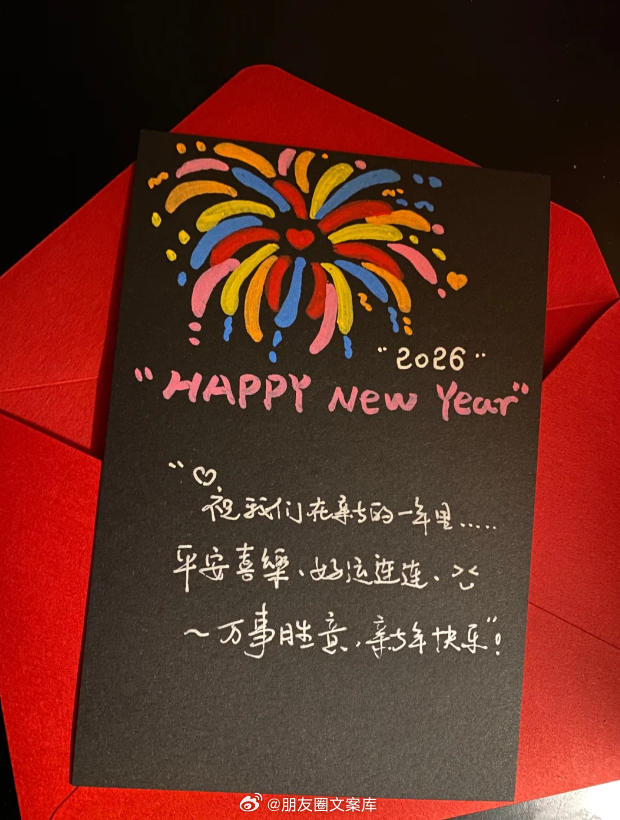 "2026"
"HAPPY New Year"
"♡
祝我们在新的一年里.....
平安喜樂、好运连连、
~万事胜意,新年快乐"!
@朋友圈文案库